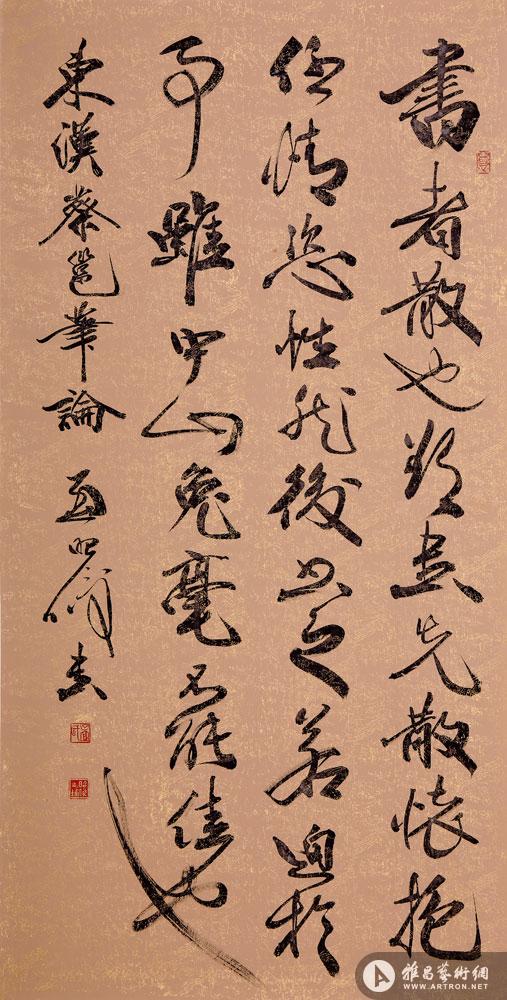 書者散也欲書先散懷抱
任情恣性然後書之若迫於
事雖中山兔毫不能佳也
東漢蔡邕筆論
書
雅昌藝術網
WWW.ARTRON.NET